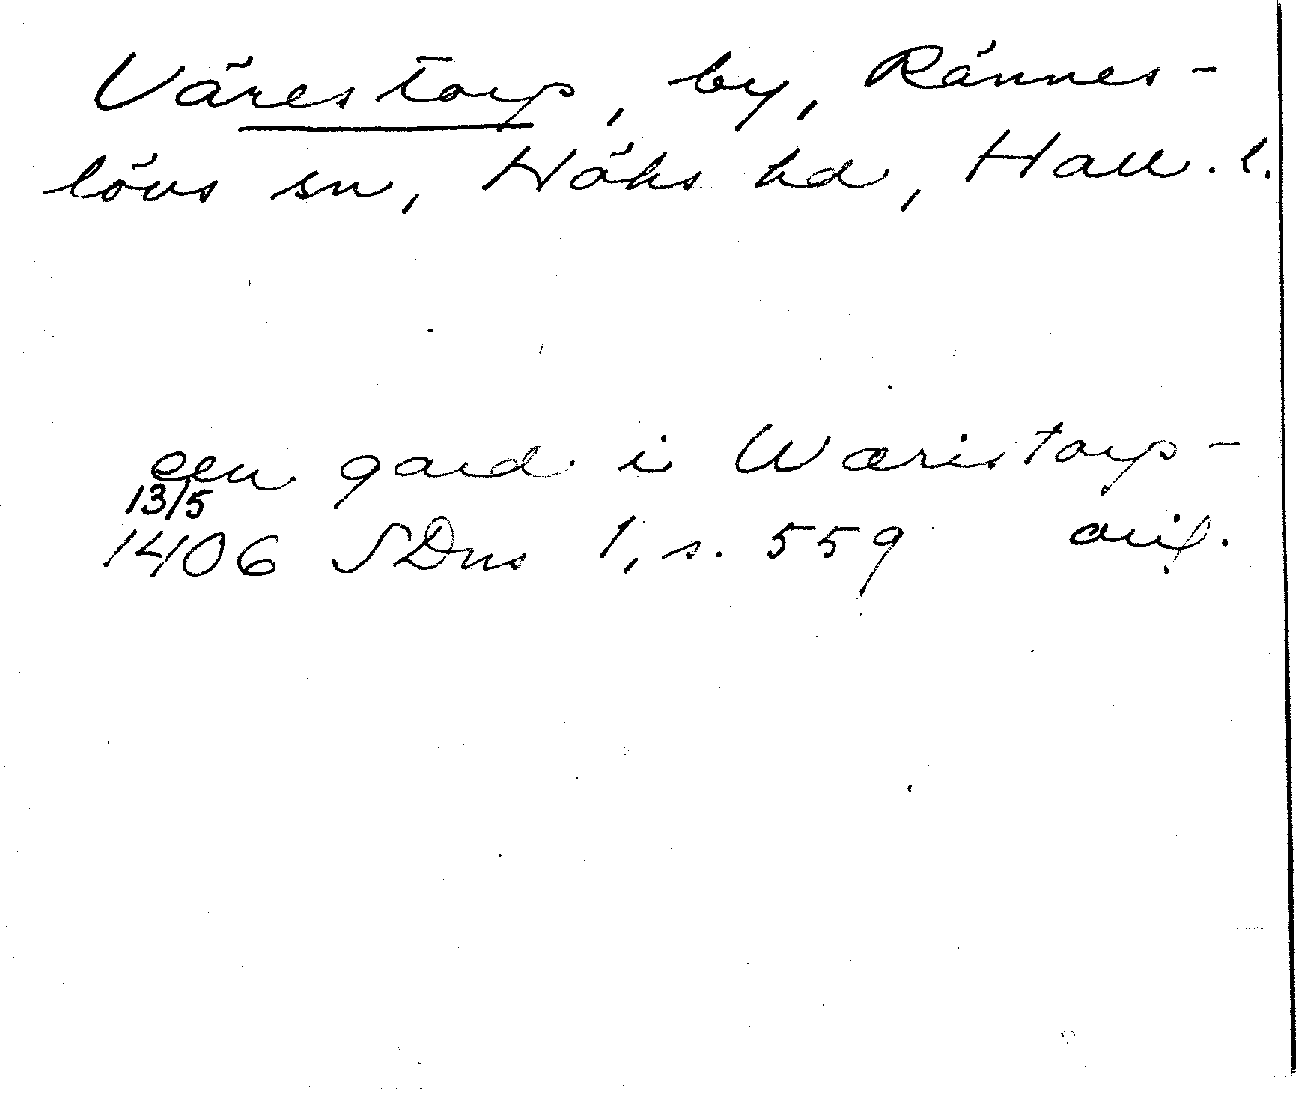 Värestorp, by, Rännes-
lövs sn, Höks hd, Hall. l.
een gard i Wæristorp -
13/5
1406 SDns 1, s. 559 orig.